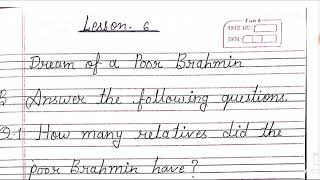 Lesson- 6
PAGE NO.
DATE:
Dream of a Poor Brahmin
B Answer the following questions.
Q.1 How many relatives did the
poor Brahmin have?